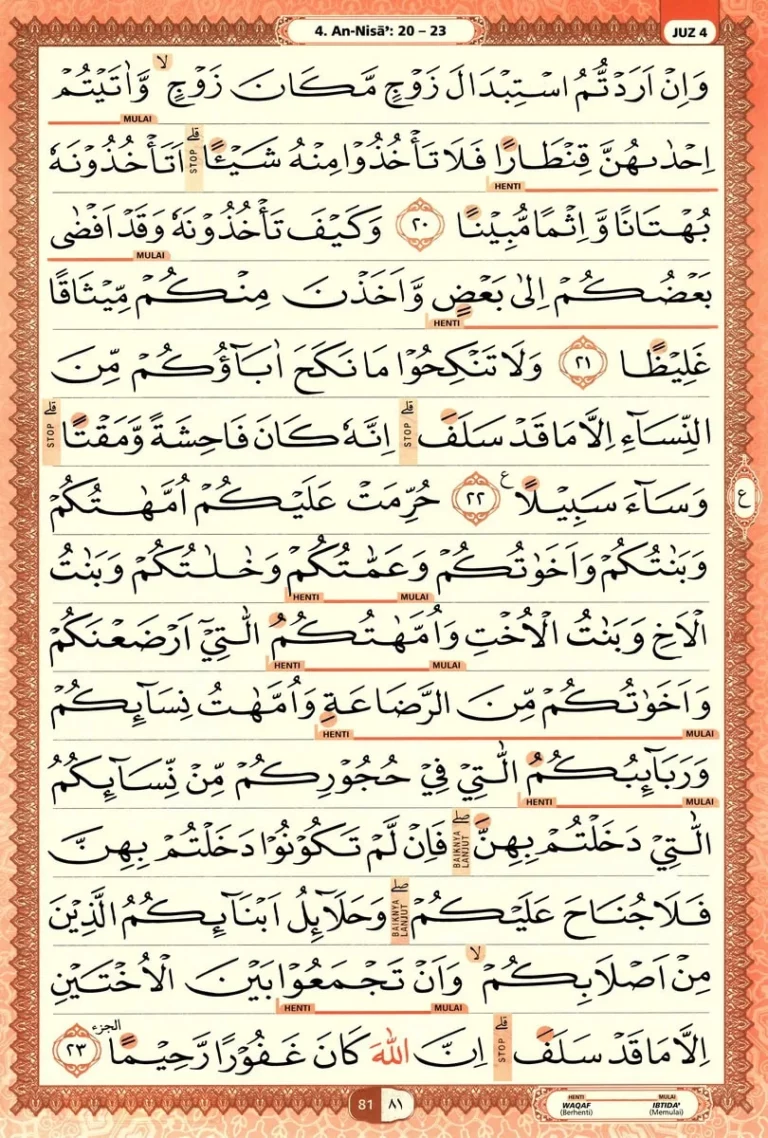 4. An-Nisā': 20 – 23
JUZ 4
وَاِنْ اَرَدْتُّمُ اسْتِبْدَالَ زَوْجٍ مَّكَانَ زَوْجٍۙ وَّاٰتَيْتُمْ
MULAI
اِحْدٰىهُنَّ قِنْطَارًا فَلَا تَأْخُذُوْا مِنْهُ شَيْـًٔاۗ اَتَأْخُذُوْنَهٗ
قلى STOP
HENTI
بُهْتَانًا وَّاِثْمًا مُّبِيْنًا ٢٠ وَكَيْفَ تَأْخُذُوْنَهٗ وَقَدْ اَفْضٰى
MULAI
بَعْضُكُمْ اِلٰى بَعْضٍ وَّاَخَذْنَ مِنْكُمْ مِّيْثَاقًا
HENTI
غَلِيْظًا ٢١ وَلَا تَنْكِحُوْا مَا نَكَحَ اٰبَاۤؤُكُمْ مِّنَ
النِّسَاۤءِ اِلَّا مَا قَدْ سَلَفَۗ اِنَّهٗ كَانَ فَاحِشَةً وَّمَقْتًاۗ
قلى STOP
قلى STOP
وَسَاۤءَ سَبِيْلًا ࣖ ٢٢ حُرِّمَتْ عَلَيْكُمْ اُمَّهٰتُكُمْ
ع
وَبَنٰتُكُمْ وَاَخَوٰتُكُمْ وَعَمّٰتُكُمْ وَخٰلٰتُكُمْ وَبَنٰتُ
MULAI HENTI
الْاَخِ وَبَنٰتُ الْاُخْتِ وَاُمَّهٰتُكُمُ الّٰتِيْٓ اَرْضَعْنَكُمْ
MULAI HENTI
وَاَخَوٰتُكُمْ مِّنَ الرَّضَاعَةِ وَاُمَّهٰتُ نِسَاۤىِٕكُمْ
MULAI HENTI
وَرَبَاۤىِٕبُكُمُ الّٰتِيْ فِيْ حُجُوْرِكُمْ مِّنْ نِّسَاۤىِٕكُمُ
MULAI HENTI
الّٰتِيْ دَخَلْتُمْ بِهِنَّۖ فَاِنْ لَّمْ تَكُوْنُوْا دَخَلْتُمْ بِهِنَّ
صلى BAIKNYA LANJUT
فَلَا جُنَاحَ عَلَيْكُمْۖ وَحَلَاۤىِٕلُ اَبْنَاۤىِٕكُمُ الَّذِيْنَ
صلى BAIKNYA LANJUT
مِنْ اَصْلَابِكُمْۙ وَاَنْ تَجْمَعُوْا بَيْنَ الْاُخْتَيْنِ
MULAI HENTI
اِلَّا مَا قَدْ سَلَفَۗ اِنَّ اللّٰهَ كَانَ غَفُوْرًا رَّحِيْمًا ٢٣
قلى STOP
الجزء
81 ٨١
HENTI WAQAF (Berhenti)
MULAI IBTIDA' (Memulai)